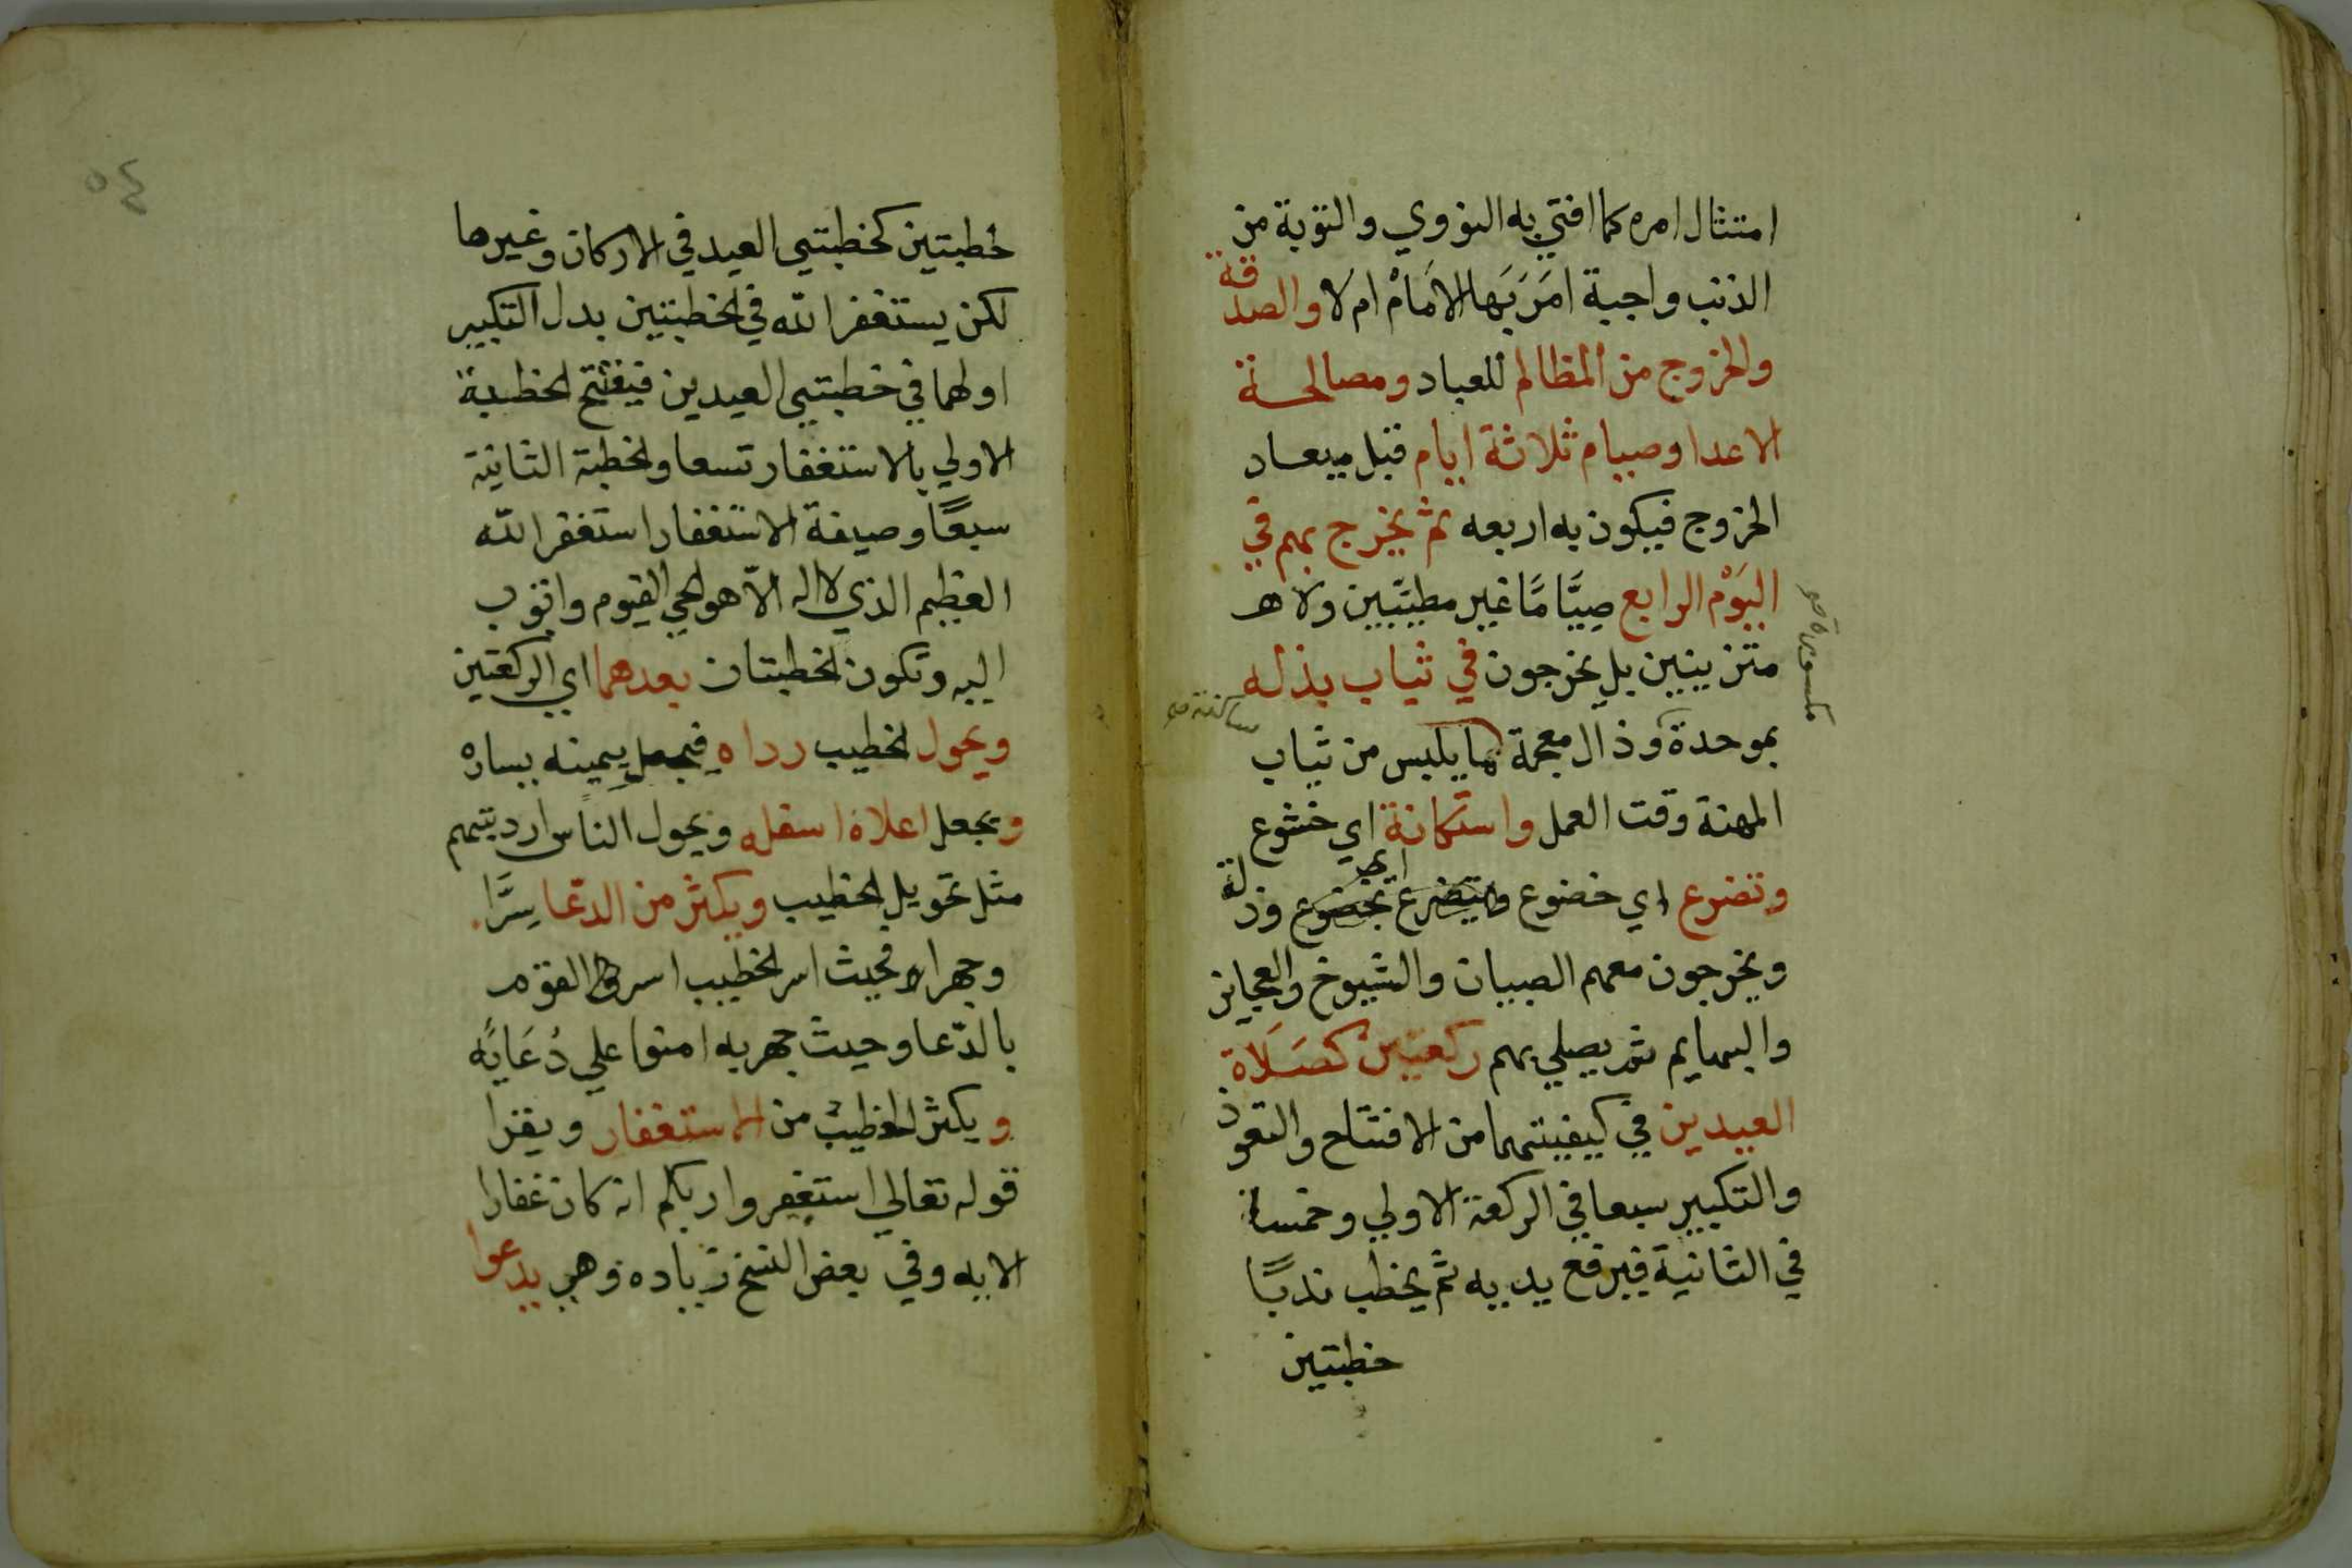 امتثال امره كما افتي به النووي والتوبة من
الذنب واجبة امَرَ بَها الامَامْ ام لا والصدقة
والخروج من المظالم للعباد ومصالحة
الاعدا وصيام ثلاثة ايام قبل ميعاد
الخروج فيكون به اربعه ثم يخرج بهم في
اليَوْم الرابع صِيَّامًا غير مطيّبين ولا
متزينين بل يخرجون في ثياب بذله
مكسورة صح
ساكنة صح
بموحدة وذال معجمة ما يلبس من ثياب
المهنة وقت العمل واستكانة اي خشوع
وتضرع اي خضوع وذلة
ويخرجون معهم الصبيان والشيوخ والعجايز
والبهايم ثم يصلي بهم ركعتين كصَلَاة
العيدين في كيفيتهما من الافتتاح والتعوذ
والتكبير سبعا في الركعة الاولي وخمسا
في الثانية فيرفع يديه ثم يخطب ندبًا
خطبتين
٥٤
خطبتين كخطبتي العيد في الاركان وغيرها
لكن يستغفر الله في الخطبتين بدل التكبير
اولهما في خطبتي العيدين فيفتتح الخطبة
الاولي بالاستغفار تسعا والخطبة الثانية
سبعًا وصيغة الاستغفار استغفر الله
العظيم الذي لا اله الّا هو الحي القيوم واتوب
اليه وتكون الخطبتان بعدهما اي الركعتين
ويحول الخطيب رداه فيجعل يمينه يساره
ويجعل اعلاه اسفله ويحول الناس ارديتهم
مثل تحويل الخطيب ويكثر من الدعا سِرًّا
وجهرا فحيث اسر الخطيب اسر القوم
بالدّعا وحيث جهر به امنوا علي دُعَايَه
ويكثر الخطيب من الاستغفار ويقرا
قوله تعالي استغفروا ربكم انه كان غفارا
الايه وفي بعض النسخ زياده وهي يدعوا